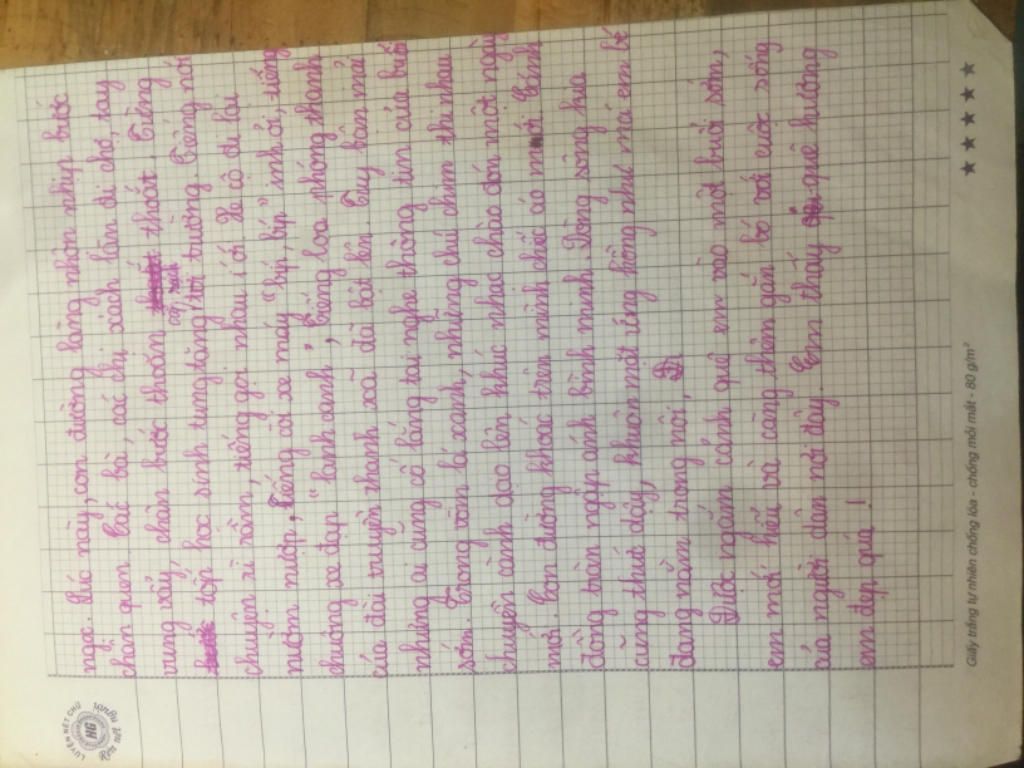 ngọc. Lúc này, con đường làng nhộn nhịp bước
chân quen. Các bà, các chị xách làn đi chợ, tay
vung vẩy, chân bước thoăn thoắt. Tiếng
cặp sách
tốp học sinh tung tăng tới trường. Tiếng nói
chuyện rì rầm, tiếng gọi nhau í ới. Xe cộ đi lại
nườm nượp, tiếng còi xe máy "bíp, bíp" inh ỏi, tiếng
chuông xe đạp "lanh canh", tiếng loa phóng thanh
của đài truyền thanh xã đã bật lên. Tuy bận mải
nhưng ai cũng cố lắng tai nghe thông tin của buổi
sớm. Trong vòm lá xanh, những chú chim thi nhau
chuyền cành dạo lên khúc nhạc chào đón một ngày
mới. Con đường khoác trên mình chiếc áo mới. Cánh
đồng tràn ngập ánh bình minh. Dòng sông kia
cũng thức dậy, khuôn mặt ửng hồng như má em bé
đang nằm trong nôi.
Được ngắm cảnh quê em vào một buổi sớm,
em mới hiểu và càng thêm gắn bó với cuộc sống
của người dân nơi đây. Em thấy quê hương
em đẹp quá!
LUYỆN NÉT CHỮ
HG
Rèn nết người
Giấy trắng tự nhiên chống lóa - chống mỏi mắt - 80 g/m²